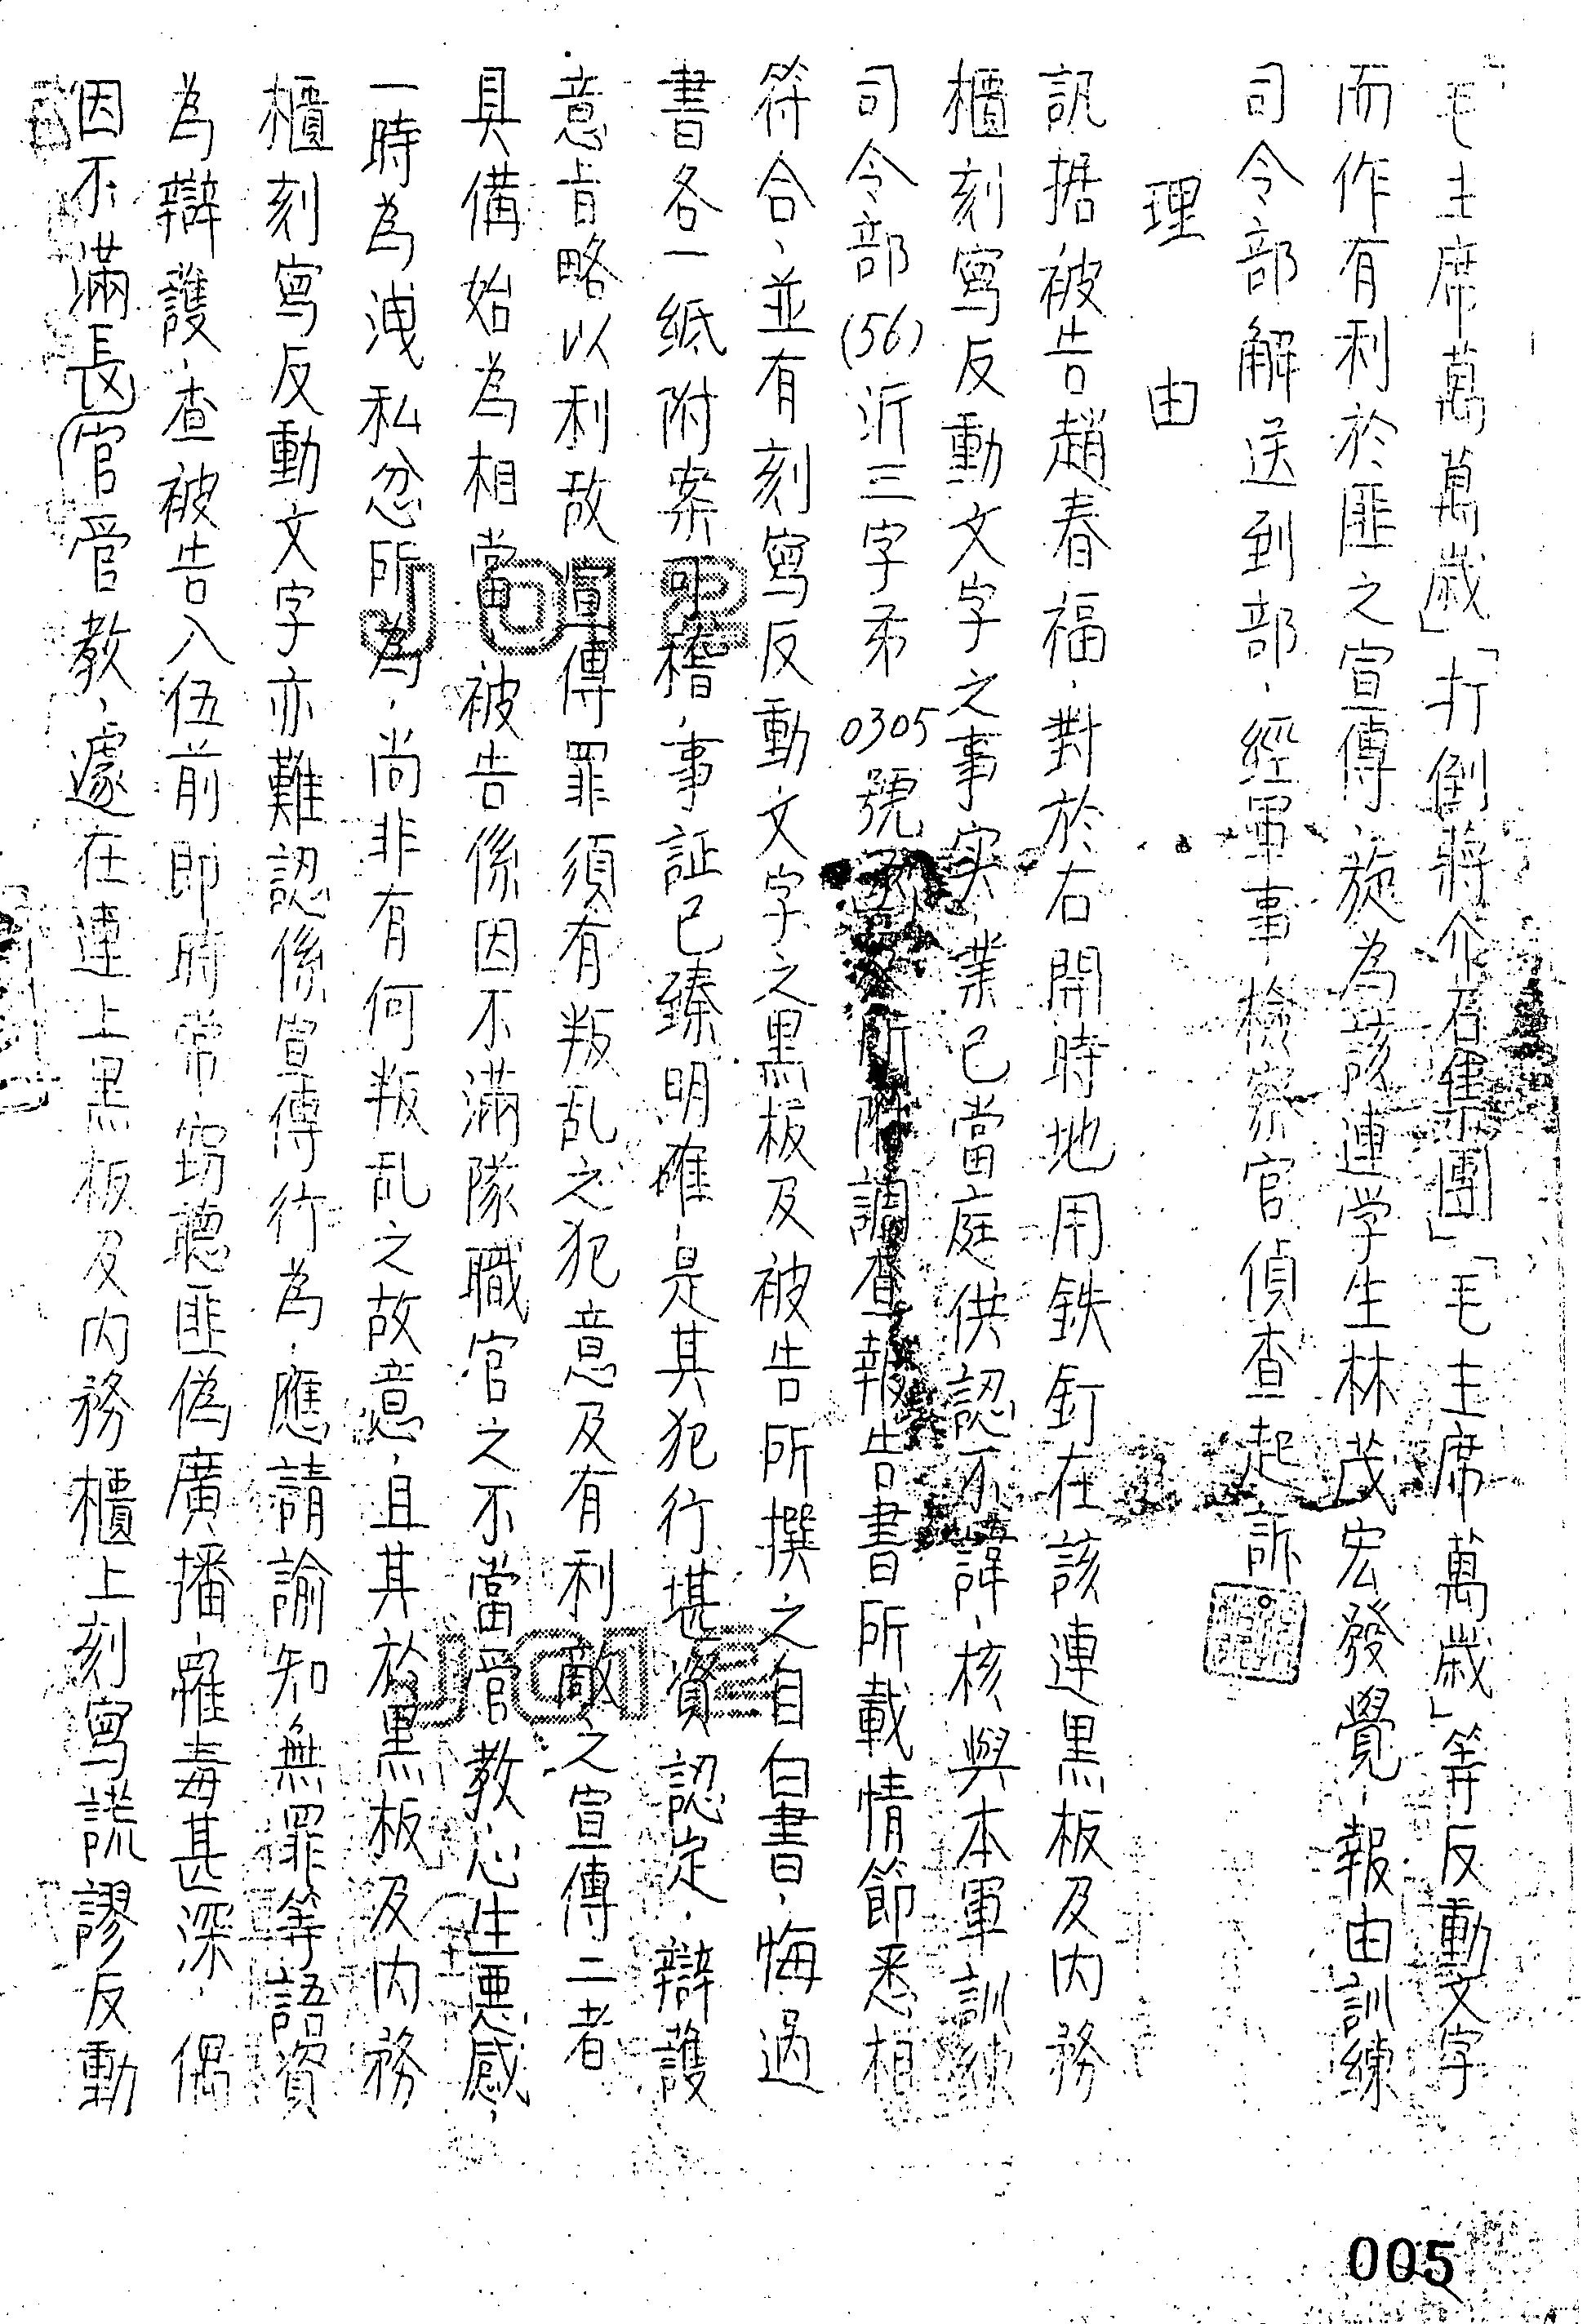 毛主席萬萬萬歲」「打倒蔣介石集團」「毛主席萬歲」等反動文字
而作有利於匪之宣傳，旋為該連学生林茂宏發覺，報由訓練
司令部解送到部，經軍事檢察官偵查起訴
理由
訊据被告趙春福，對於右開時地用鉄釘在該連黑板及內務
櫃刻寫反動文字之事实，業已當庭供認不諱，核與本軍訓練
司令部(56)沂三字㐧0305號所附調查報告書所載情節悉相
符合，並有刻寫反動文字之黑板及被告所撰之自白書，悔過
書各一紙附案可稽，事証已臻明確，是其犯行堪資認定，辯護
意旨略以利敌宣傳罪須有叛乱之犯意及有利敵之宣傳二者
具備始為相當，被告係因不滿隊職官之不當管教心生悪感，
一時為洩私忿所為，尚非有何叛乱之故意，且其於黑板及內務
櫃刻寫反動文字亦難認係宣傳行為，應請諭知無罪等語資
為辯護，查被告入伍前即時常窃聽匪偽廣播，罹毒甚深，偶
因不滿長官管教，遽在連上黑板及內務櫃上刻寫謊謬反動
005